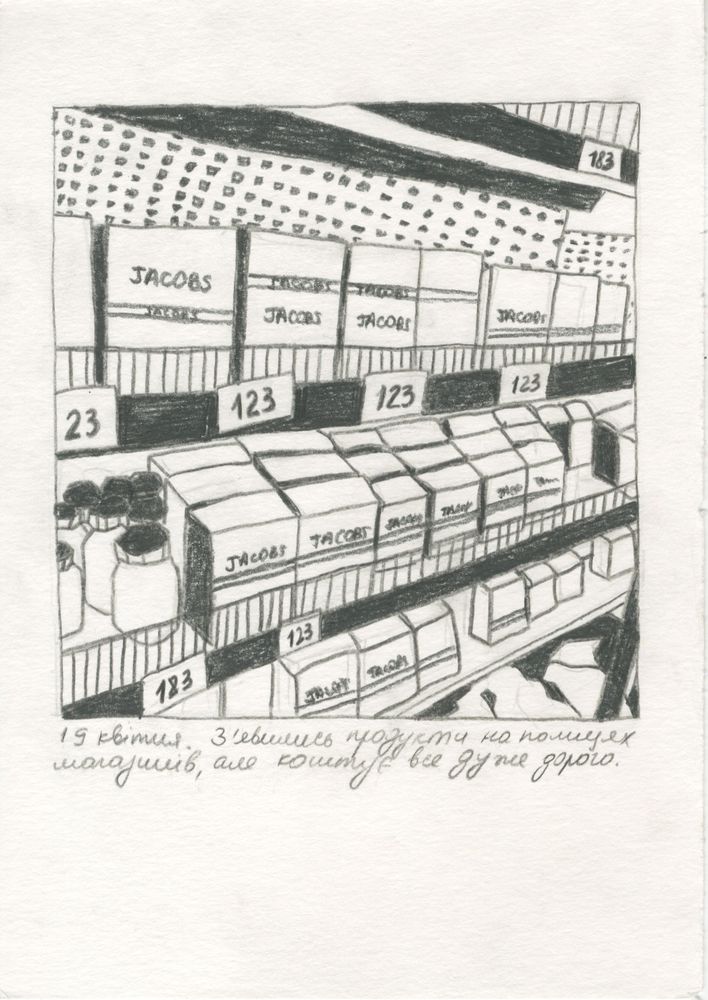 183
JACOBS
JACOBS
JACOBS
JACOBS
JACOBS
JACOBS
JACOBS
23
123
123
123
JACOBS
JACOBS
JACOBS
123
183
JACOBS
19 квітня. З'явились продукти на полицях
магазинів, але коштує все дуже дорого.